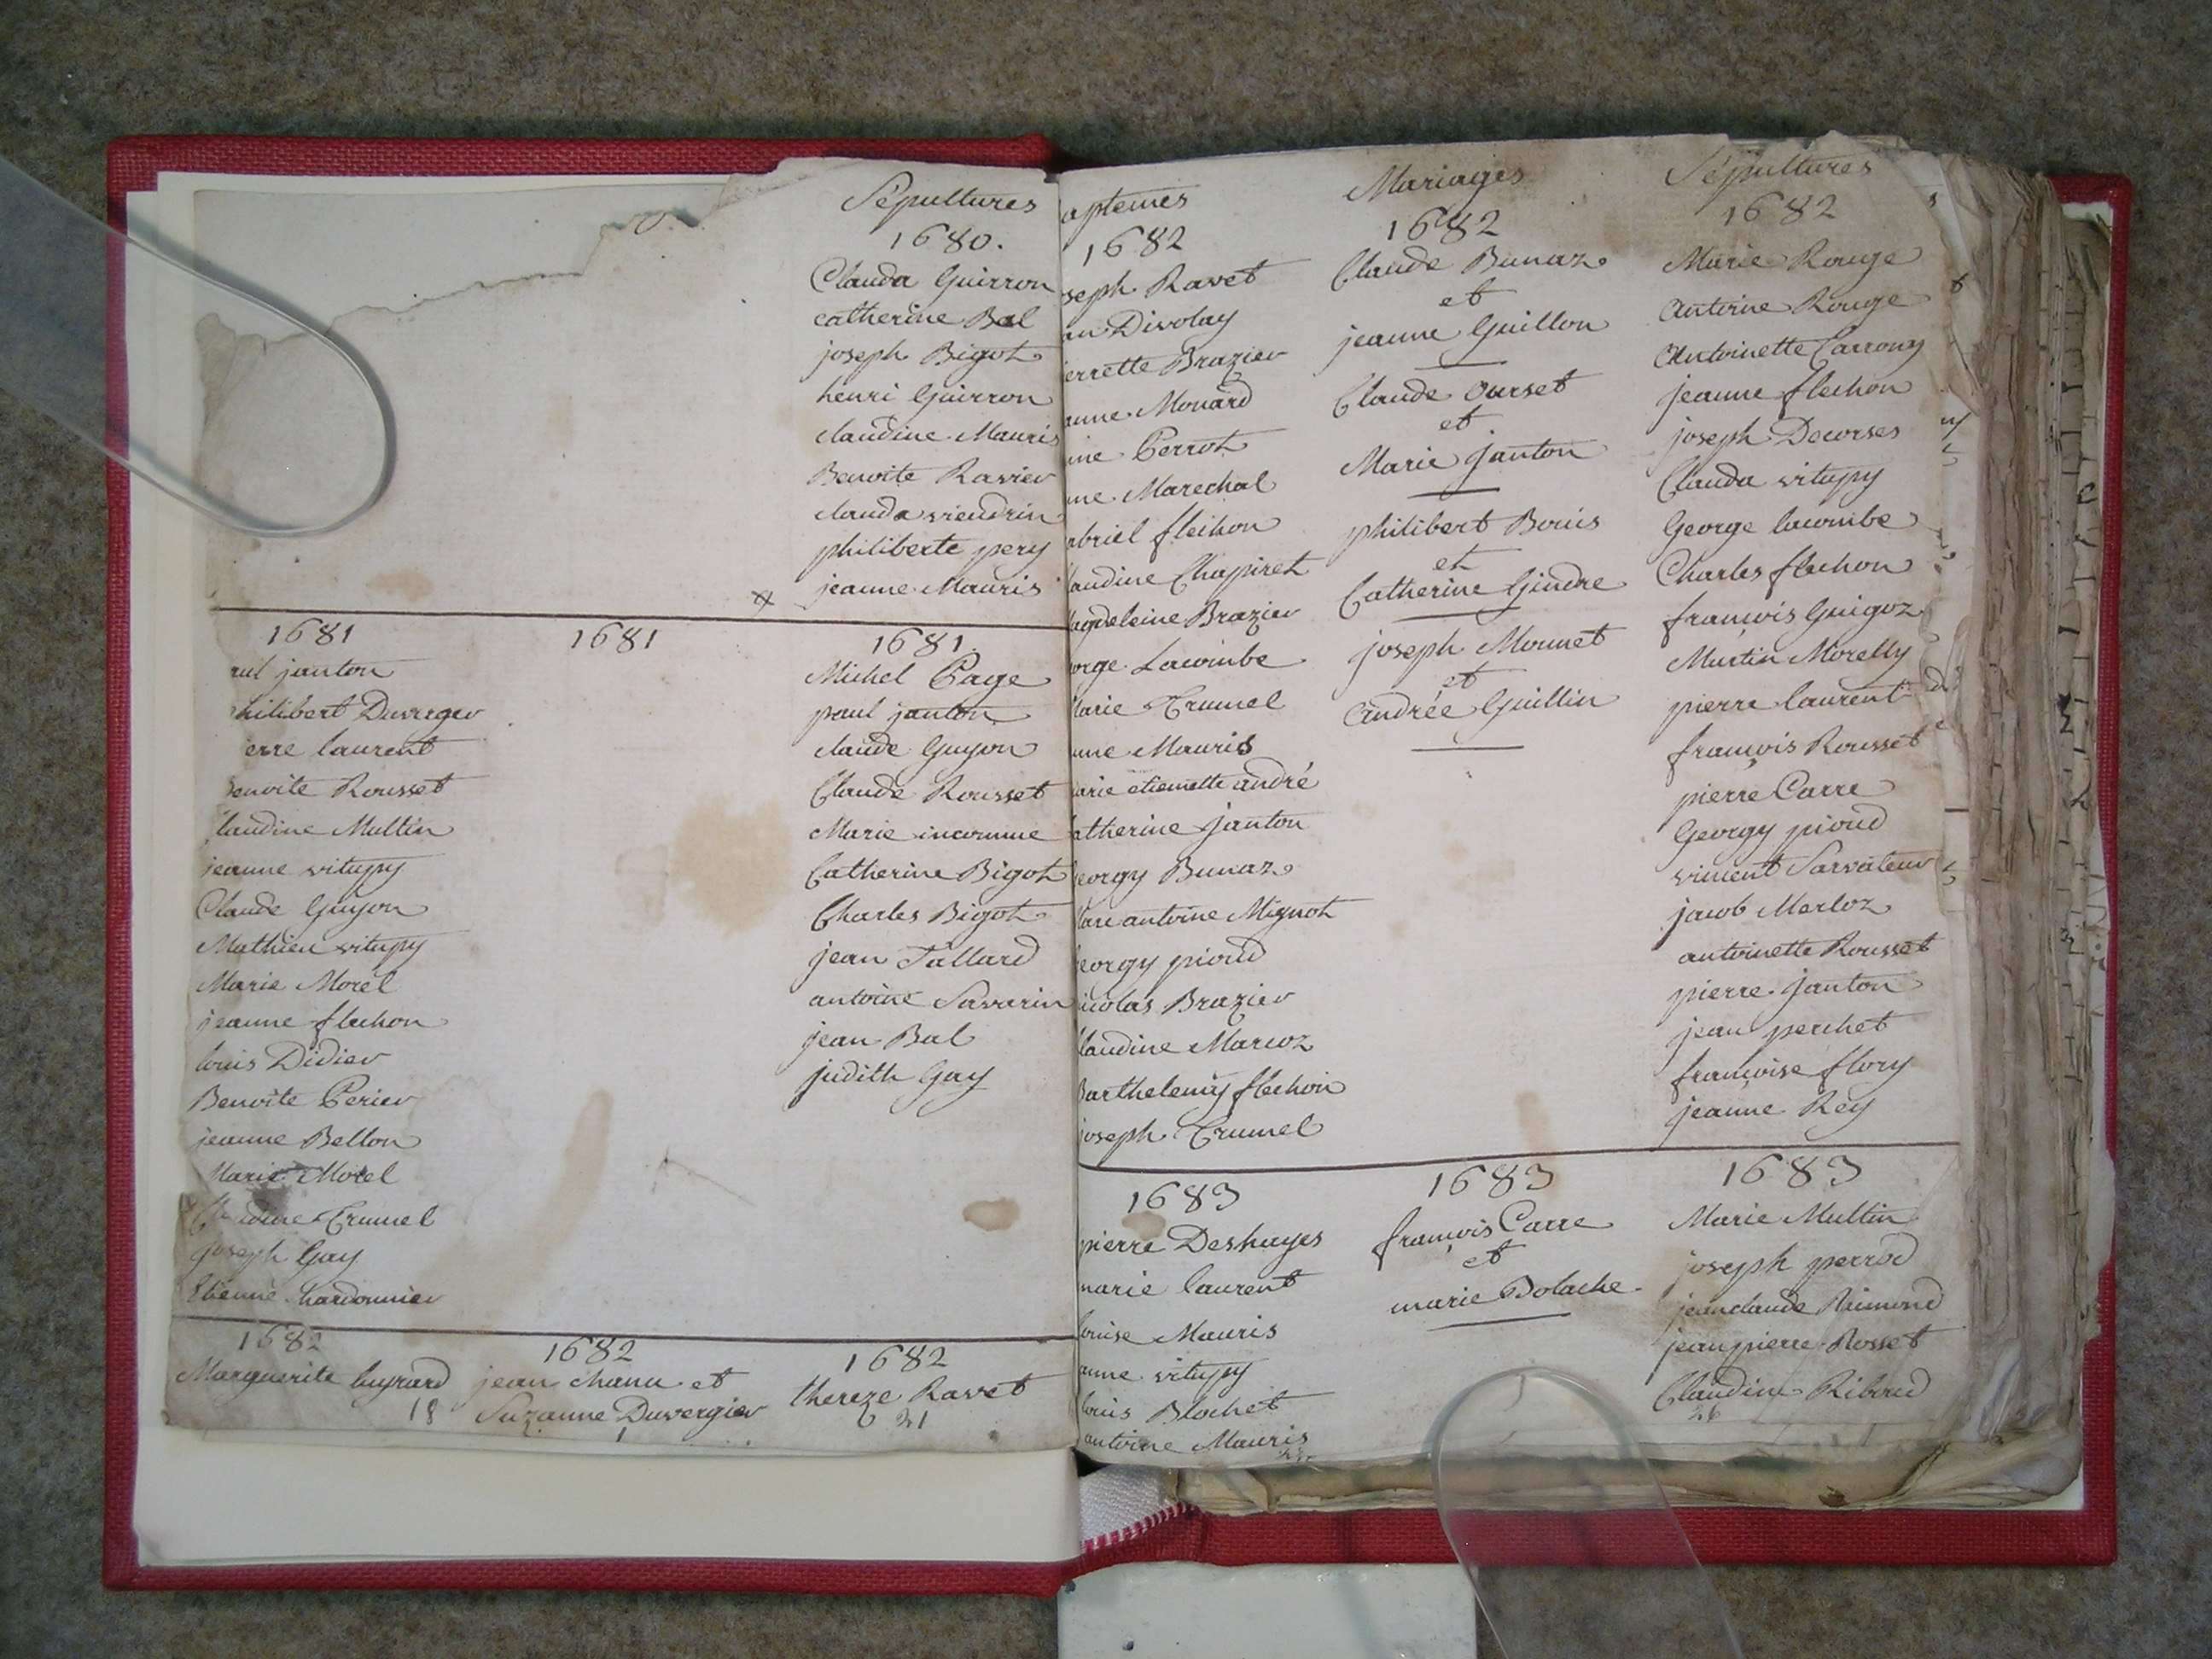 Sépultures
1680.
Clauda Guirron
catherine Bal
joseph Bigot
henri Guirron
claudine Mauris
Benoite Ravier
clauda vieudrin
philiberte pery
jeanne Mauris
1681
aul janton
hilibert Duverger
erre laurent
enoite Rousset
laudine Multin
jeanne vitupy
Claude Guyon
Mathieu vitupy
Marie Morel
jeanne flechon
louis Didier
Benoite Perier
jeanne Bellon
Marie Morel
Crumel
joseph Gay
Etienne hardonnier
1681
1681.
Michel Page
paul janton
claude Guyon
Claude Rousset
Marie inconnue
Catherine Bigot
Charles Bigot
jean Tallard
antoine Savarin
jean Bal
judith Gay
1682
Marguerite
18
1682
jean chanu et
Suzanne Duvergier
1
1682
thereze Ravet
21
aptemes
1682
seph Ravet
an Divolay
errette Brazier
anne Monard
ine Perrot
ne Marechal
abriel flechon
laudine Chapiret
agdeleine Brazier
orge Lacombe
arie Crumel
nne Mauris
arie etiennette andré
atherine janton
eorgy Bunaz
arc antoine Mignot
eorgy pioud
icolas Brazier
laudine Marcoz
Barthelemy flechon
joseph Crumel
Mariages
1682
Claude Bunaz
et
jeanne Guillon
Claude Ourset
et
Marie janton
philibert Bouis
et
Catherine Gindre
joseph Monnet
et
Andrée Guillin
Sépultures
1682
Marie Rouge
Antoine Rouge
Antoinette Carrony
jeanne flechon
joseph Decorses
Clauda vitupy
George lacombe
Charles flechon
francois Guigoz
Martin Morelly
pierre laurent
francois Rousset
pierre Carre
Georgy pioud
vincent Sarvateur
jacob Merloz
antoinette Rousset
pierre janton
jean perchet
francoise flory
jeanne Rey
1683
pierre Deshayes
marie laurent
louise Mauris
anne vitupy
louis Blochet
antoine Mauris
1683
francois Carre
et
marie Dolache
1683
Marie Multin
joseph perrod
jean claude Raimond
jean pierre Rosset
Claudine Riboud
26